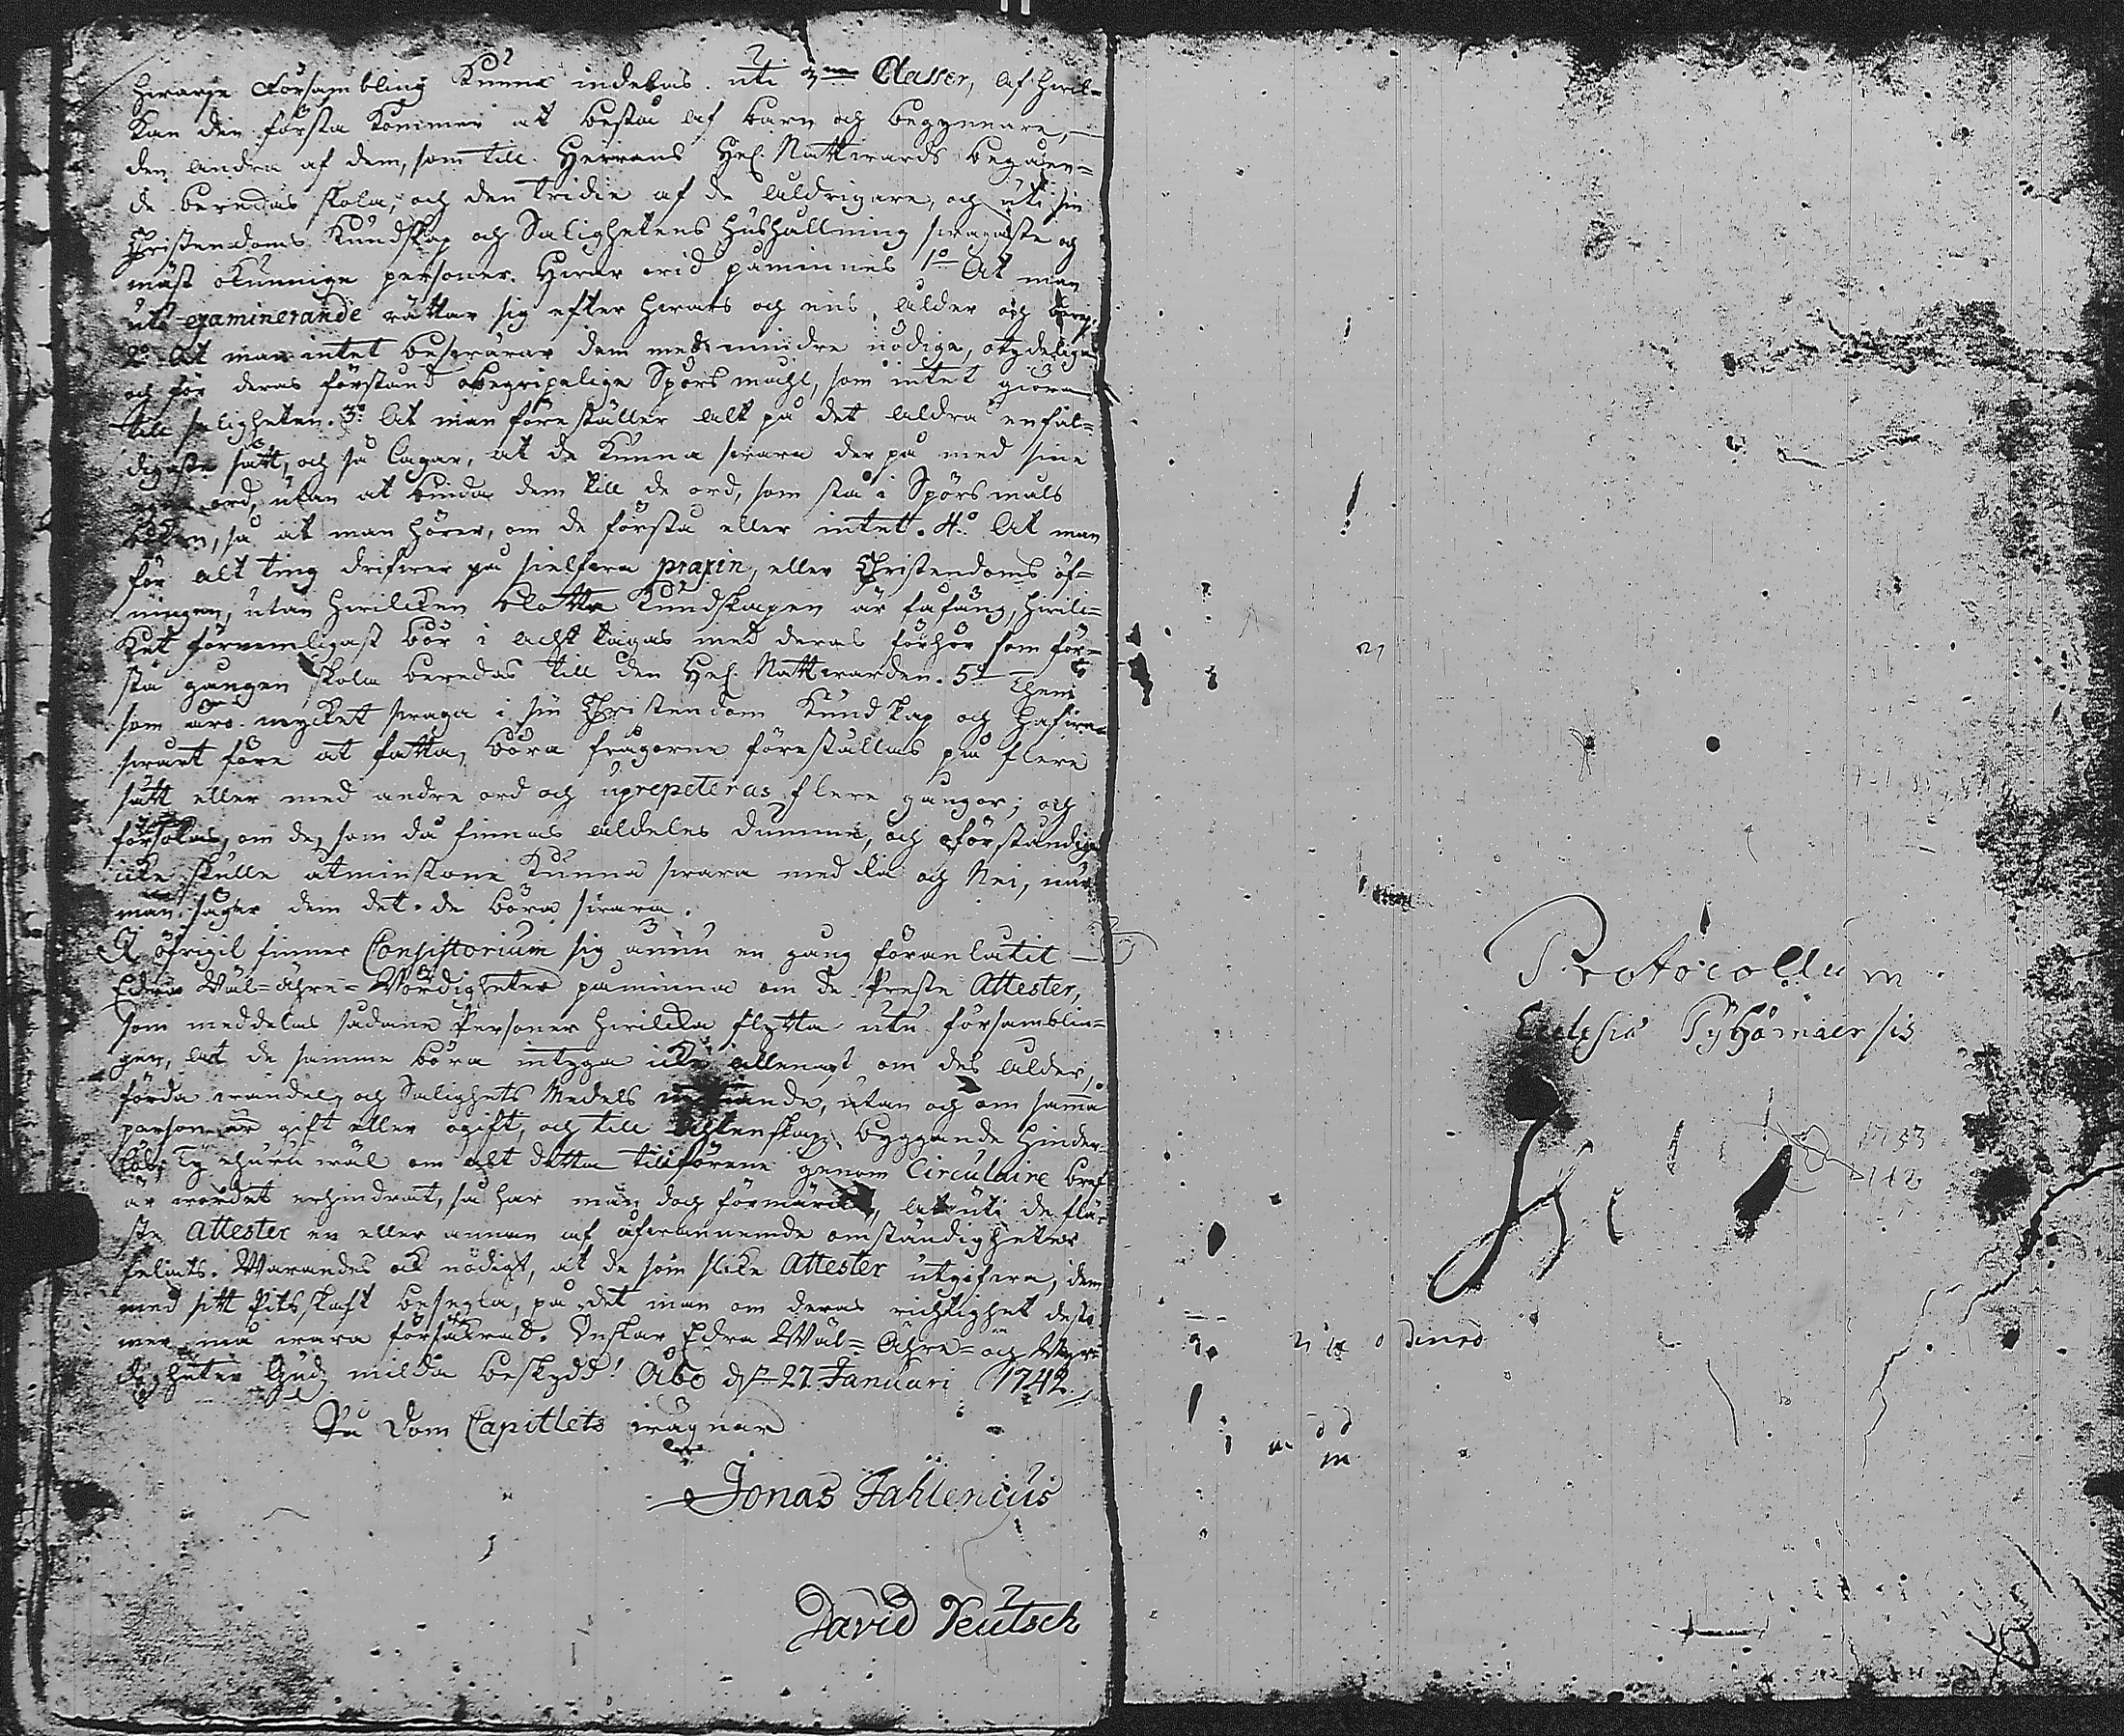 hwarje Försambling kunna indelas uti 3ne Classer, af hwil-
kan den första kommer at bestå af barn och begynnare,
den andra af dem, som till Herrans Hel. Nattwards begåen-
de beredas skola, och den tridie af de åldrigare, och uti sin
Christendoms Kundskap och Salighetens Hushållning swagaste och
mäst okunniga personer. Hwar wid påminnes 1o At man
uti examinerande rättar sig efter hwars och ens ålder och
2o At man intet beswärar dem med mindre nödiga, otydeliga
och för deras förstånd obegripelige Spörsmåhl, som intet giöra
till saligheten. 3o At man föreställer alt på det aldra enfal-
digaste sätt, och så lagar, at de kunna swara der på med sina
ord, utan at binda dem till de ord, som stå i Spörsmåls
boken, så at man hörer, om de förstå eller intet. 4o At man
för alt ting drifwer på sielfwa praxin, eller Christendoms öf-
ningen, utan hwilcken blotta Kundskapen är fåfäng, hwil-
ket förnemligast bör i acht tagas med deras förhör som för-
sta gången skola beredas till den Hel. Nattwarden. 5o Them
som äro mycket swaga i sin Christendom Kundskap och hafwa
swårt före at fatta, böra frågorne föreställas på flere
sätt eller med andre ord och uprepeteras flere gångor; och
försökas, om de, som då finnas aldeles dumma, och oförståndige
icke skulle åtminstone kunna swara med Ja och Nei, når
man säger dem det de böra swara.
I öfrigit finner Consistorium sig ännu en gång föranlåtit
Edra Wäl-Ähre-Wördigheter påminna om de Preste Attester,
som meddelas sådane Personer hwilcka flytta utu församblin-
gen, at de samma böra intyga icke allenast om des ålder,
förda wandel och Salighets Medels ande, utan och om samma
person är gift eller ogift, och tillÄchtenskaps byggande hinder-
lös. Ty ehuru wäl om alt detta tillförene genom Circulaire bref
är wordet erhindrat, så har man dog förmärckt, at uti de flä-
ste Attester en eller annan af ofwannemde omständigheter
felats. Warandes ok nödigt, at de som slike Attester utgifwa, dem
med sitt Pitsskaft besegla, på det man om deras richtighet desto
mer må wara försäkrad. Önskar Edra Wäl-Ähre- och Wyr-
digheter Gudz milda beskydd! Åbo d. 27 Januari 1742.
På Dom Capitlets wägnar
Jonas Fahlenius
David Deutsch
Protocollum
Ecclesiæ
1753